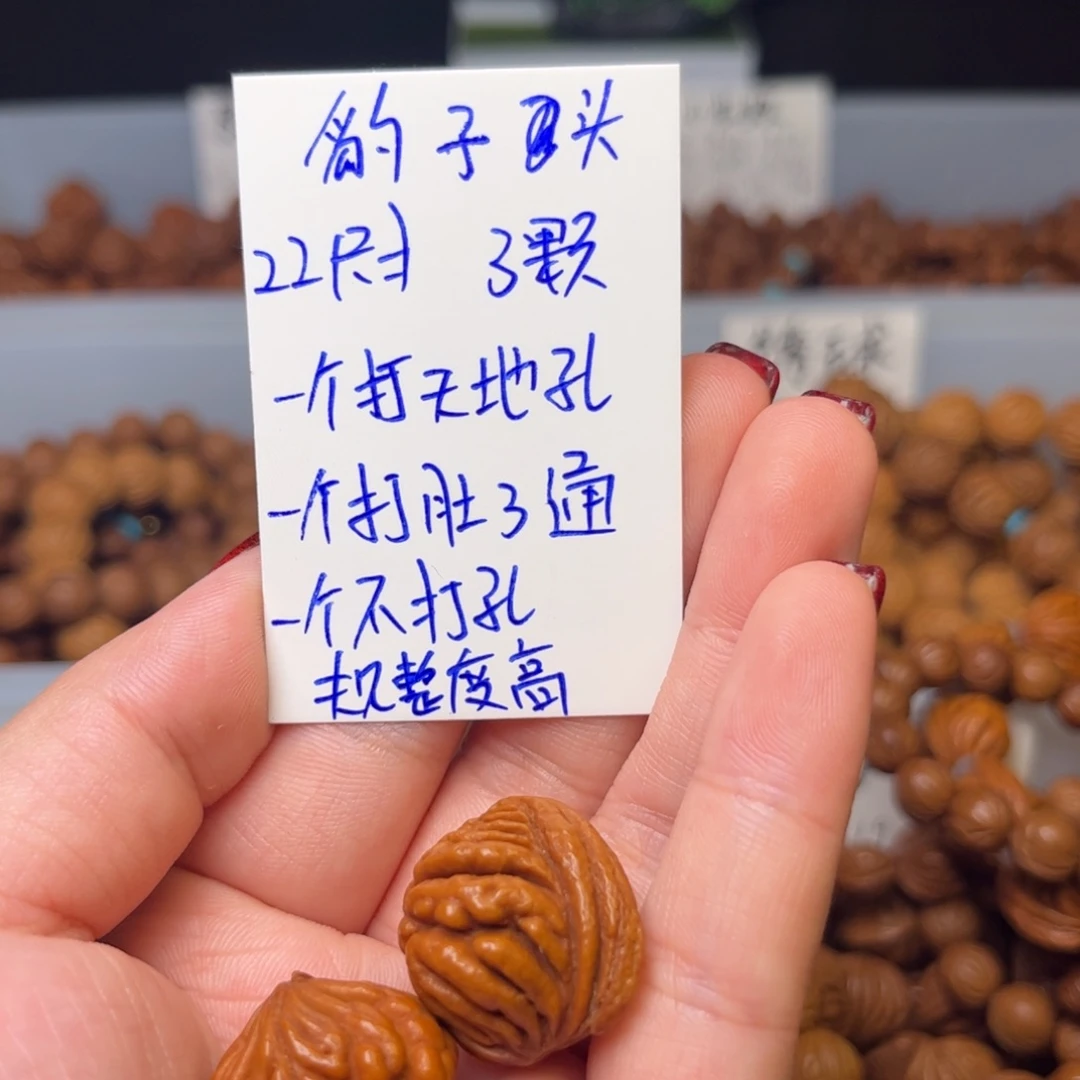 豹子头
22尺寸 3颗
一个打天地孔
一个打肚3通
一个不打孔
规整度高